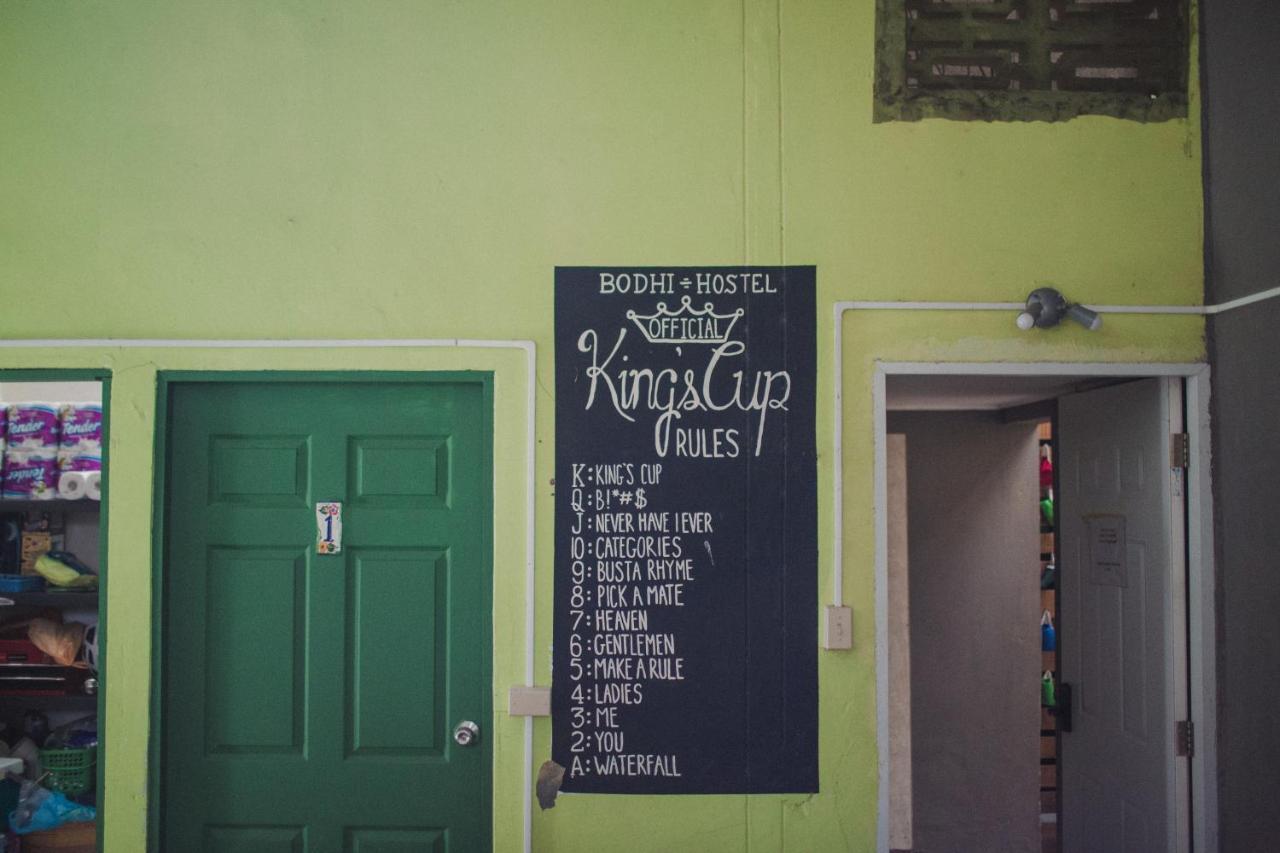 BODHI ÷ HOSTEL
OFFICIAL
King's Cup
RULES
K: KING'S CUP
Q: B!*#$
J: NEVER HAVE I EVER
10: CATEGORIES
9: BUSTA RHYME
8: PICK A MATE
7: HEAVEN
6: GENTLEMEN
5: MAKE A RULE
4: LADIES
3: ME
2: YOU
A: WATERFALL
1
Tender
Tender
Tender
Tender